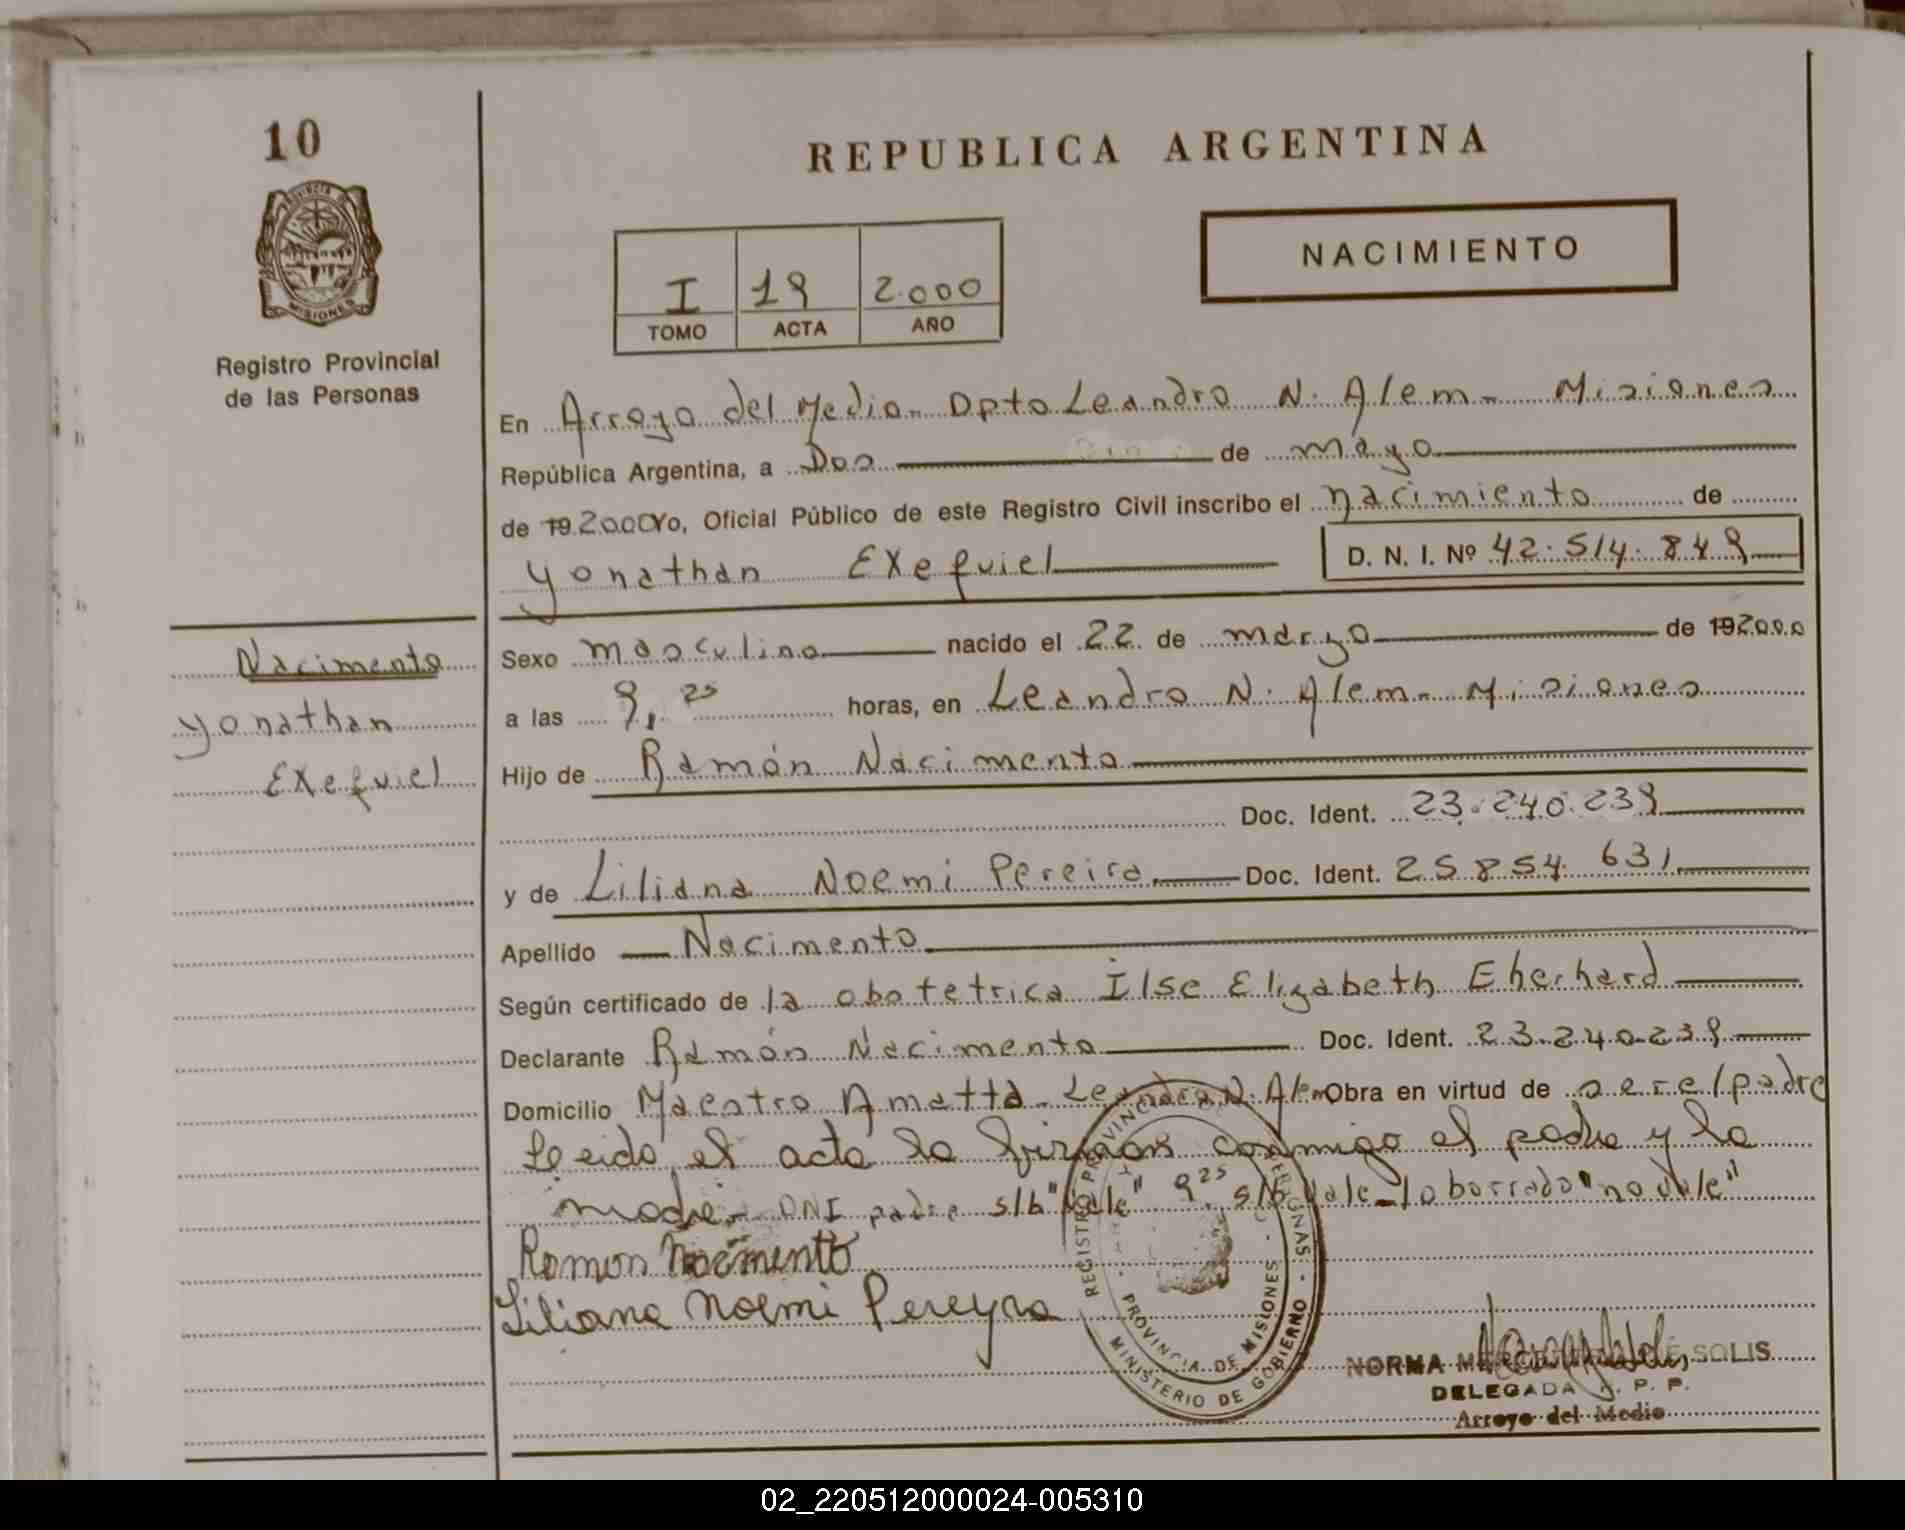 10
REPUBLICA ARGENTINA
PROVINCIA
MISIONES
Registro Provincial
de las Personas
I 19 2.000
TOMO ACTA AÑO
NACIMIENTO
En Arroyo del Medio - Dpto Leandro N. Alem - Misiones
República Argentina, a Dos de mayo
de 19 2000 Yo, Oficial Público de este Registro Civil inscribo el nacimiento de
Yonathan Exequiel D. N. I. Nº 42.514.849
Nacimento
Yonathan
Exequiel
Sexo masculino nacido el 22 de marzo de 19 2000
a las 9,25 horas, en Leandro N. Alem - Misiones
Hijo de Ramón Nacimento
Doc. Ident. 23.240.239
y de Liliana Noemi Pereira Doc. Ident. 25854.631
Apellido Nacimento
Según certificado de la obstetrica Ilse Elizabeth Eherhard
Declarante Ramón Nacimento Doc. Ident. 23.240.239
Domicilio Maestro Amatta - Leandro N. Alem Obra en virtud de ser el padre
Leido el acta la firman conmigo el padre y la
madre - DNI padre s/b "Vale" 9 25 s/b Vale - lo borrado "no vale"
Ramon Nacimento
Liliana Noemi Pereyra
REGISTRO PROVINCIAL DE LAS PERSONAS - PROVINCIA DE MISIONES - MINISTERIO DE GOBIERNO -
NORMA SOLIS
DELEGADA R. P. P.
Arroyo del Medio
02_220512000024-005310